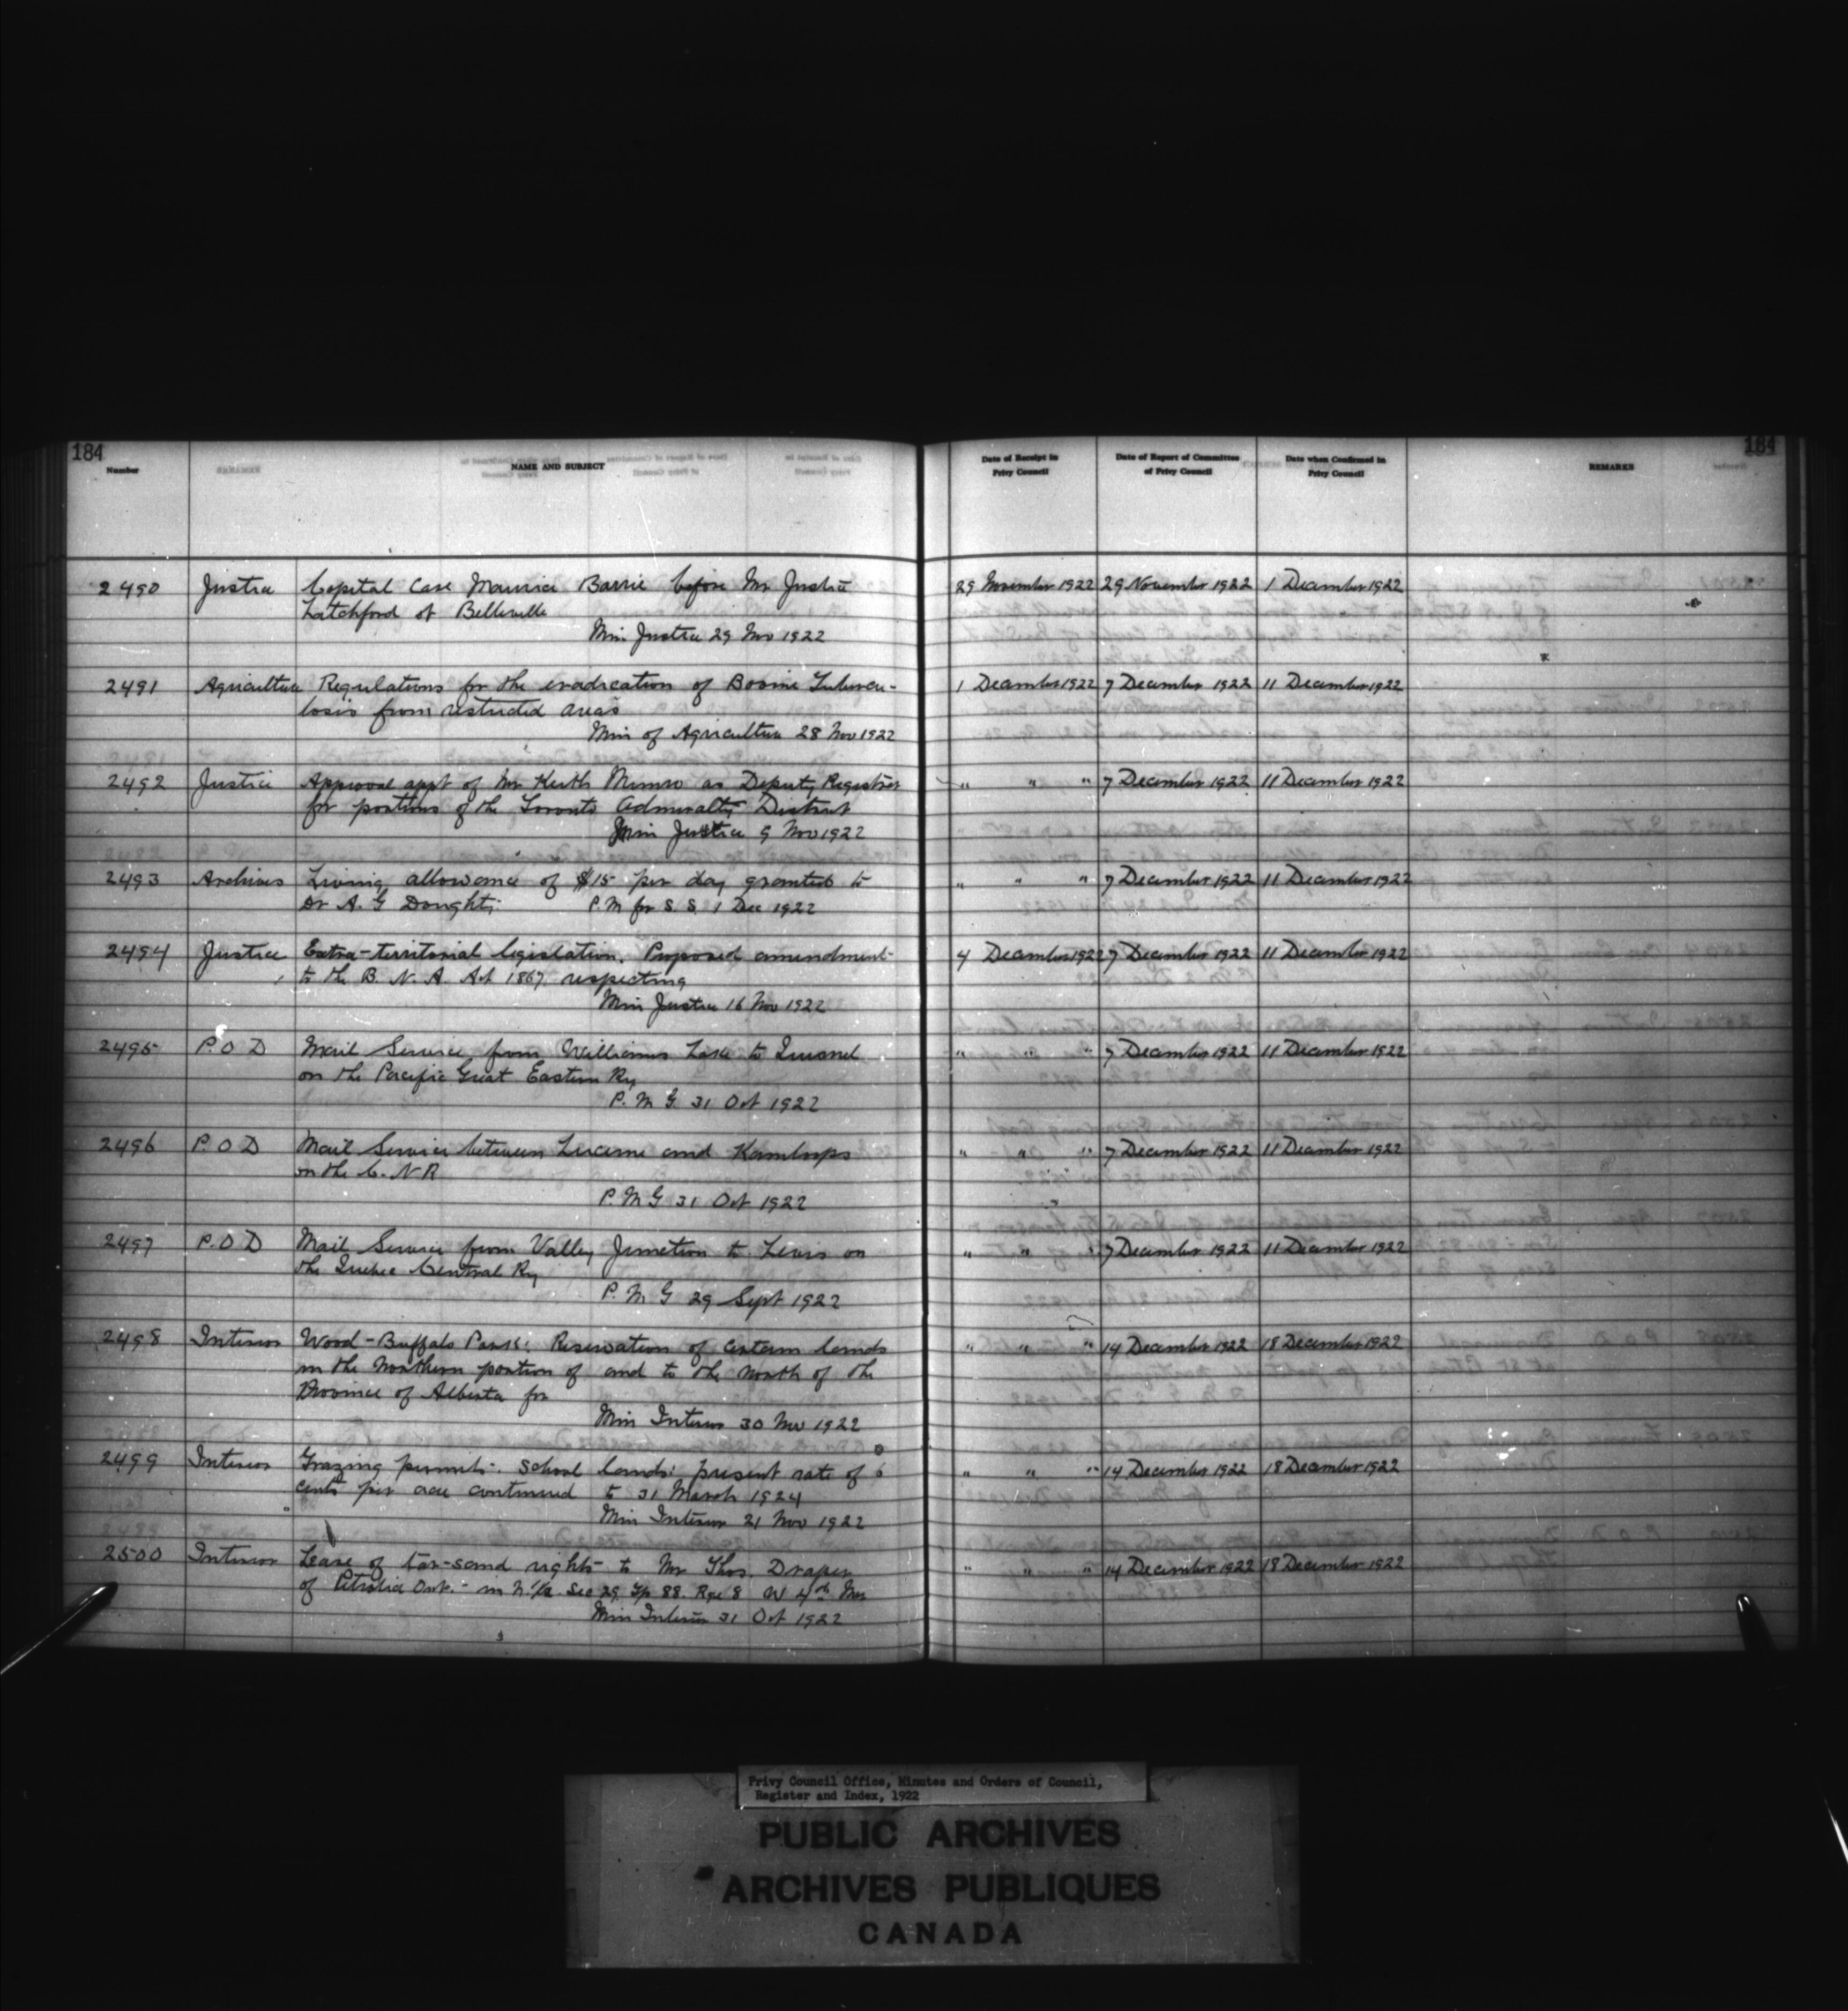 184
184
Number
NAME AND SUBJECT
Date of Receipt in Privy Council
Date of Report of Committee of Privy Council
Date when Confirmed in Privy Council
REMARKS
2490 Justice Capital Case Maurice Barrie before Mr Justice 29 November 1922 29 November 1922 1 December 1922
Latchford at Belleville
Min Justice 29 Nov 1922
2491 Agriculture Regulations for the eradication of Bovine Tubercu- 1 December 1922 7 December 1922 11 December 1922
losis from restricted areas
Min of Agriculture 28 Nov 1922
2492 Justice Approval appt of Mr Keith Munro as Deputy Registrar " " " 7 December 1922 11 December 1922
for portions of the Toronto Admiralty District
Min Justice 9 Nov 1922
2493 Archives Living allowance of $15 per day granted to " " " 7 December 1922 11 December 1922
Dr A. G Doughty P. M for S. S. 1 Dec 1922
2494 Justice Extra-territorial legislation. Proposed amendment 4 December 1922 7 December 1922 11 December 1922
to the B. N. A. Act 1867. respecting
Min Justice 16 Nov 1922
2495 P. O D Mail Service from Williams Lake to Quesnel " " " 7 December 1922 11 December 1922
on the Pacific Great Eastern Ry
P. M G. 31 Oct 1922
2496 P. O D Mail Service between Lucerne and Kamloops " " " 7 December 1922 11 December 1922
on the C. N R
P. M G 31 Oct 1922
2497 P. O D Mail Service from Valley Junction to Levis on " " " 7 December 1922 11 December 1922
the Quebec Central Ry
P. M G 29 Sept 1922
2498 Interior Wood-Buffalo Park: Reservation of certain lands " " " 14 December 1922 18 December 1922
in the Northern portion of and to the North of the
Province of Alberta for
Min Interior 30 Nov 1922
2499 Interior Grazing permits. School lands: present rate of 6 " " " 14 December 1922 18 December 1922
cents per acre continued to 31 March 1924
Min Interior 21 Nov 1922
2500 Interior Lease of tar-sand rights to Mr Thos. Draper " " " 14 December 1922 18 December 1922
of Petrolia Ont. - in N. 1/2 Sec 29. Tp 88. Rge 8 W 4th Mer
Min Interior 31 Oct 1922
Privy Council Office, Minutes and Orders of Council,
Register and Index, 1922
PUBLIC ARCHIVES
ARCHIVES PUBLIQUES
CANADA